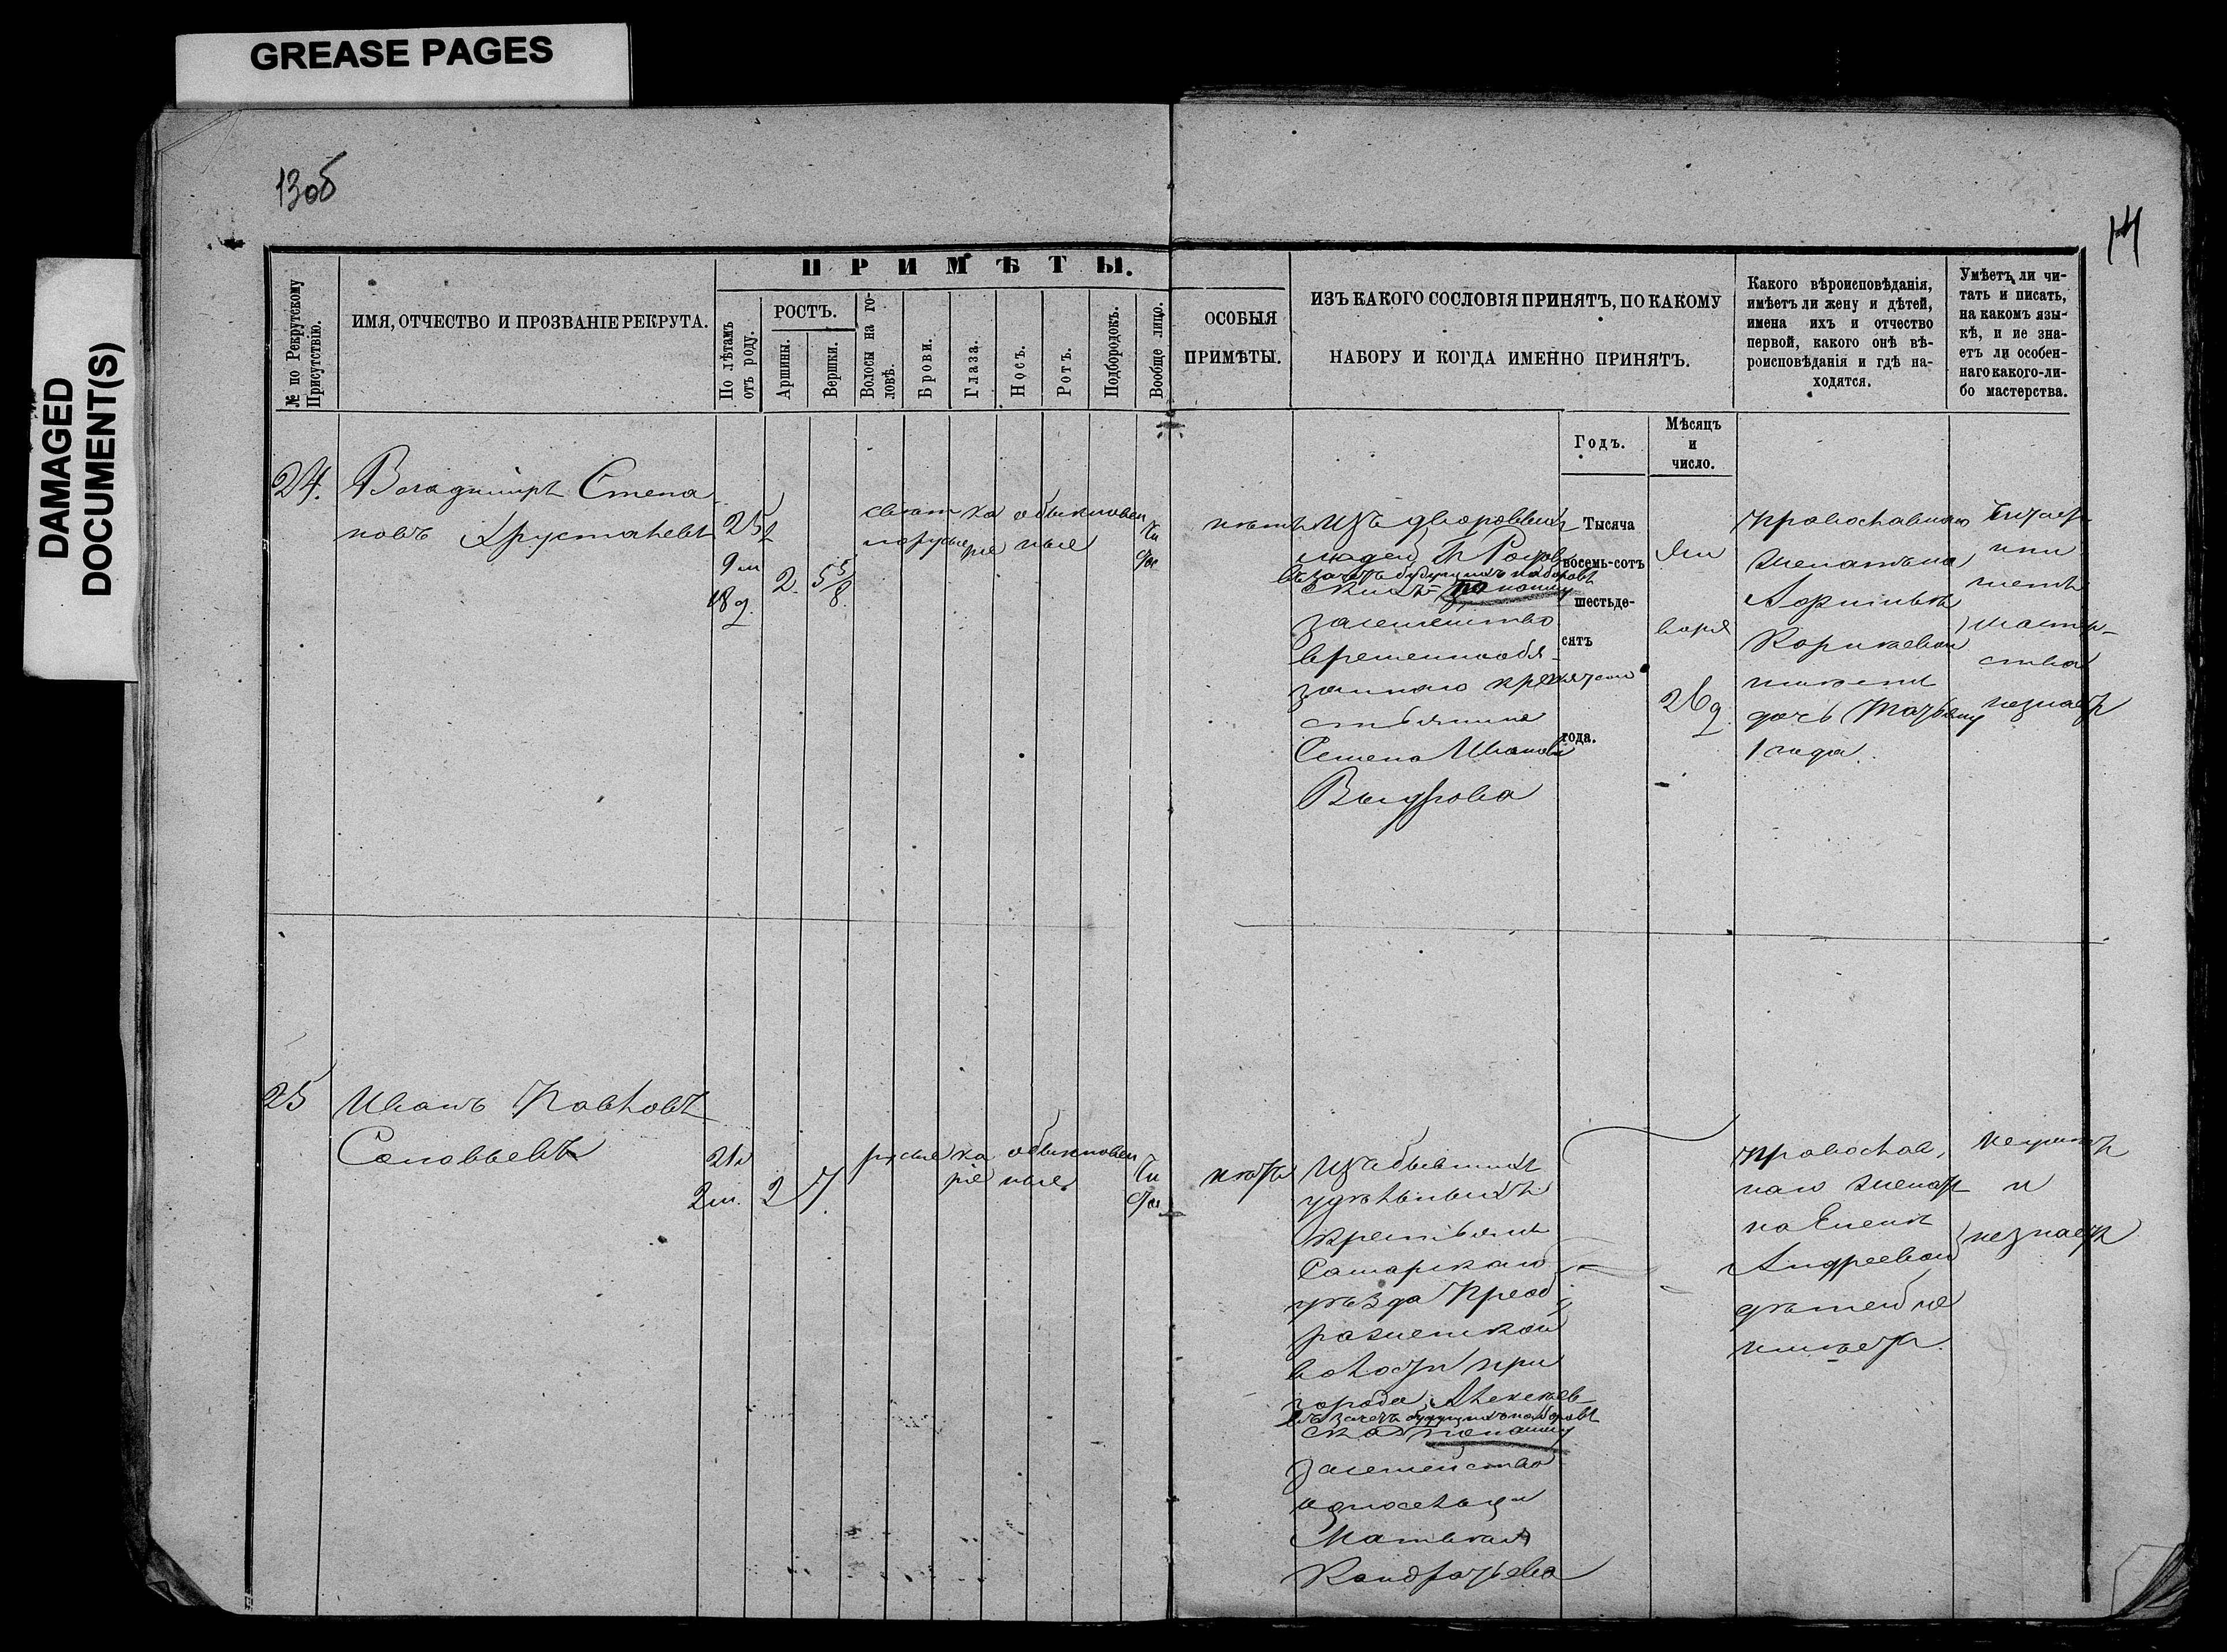 GREASE PAGES
DAMAGED
DOCUMENT(S)
13об
14
№ по Рекрутскому
Присутствію.
ИМЯ, ОТЧЕСТВО И ПРОЗВАНІЕ РЕКРУТА.
ПРИМѢТЫ.
По лѣтамъ
отъ роду.
РОСТЪ.
Аршины.
Вершки.
Волосы на го-
ловѣ.
Брови.
Глаза.
Носъ.
Ротъ.
Подбородокъ.
Вообще лицо.
ОСОБЫЯ
ПРИМѢТЫ.
ИЗЪ КАКОГО СОСЛОВІЯ ПРИНЯТЪ, ПО КАКОМУ
НАБОРУ И КОГДА ИМЕННО ПРИНЯТЪ.
Годъ.
Мѣсяцъ
и
число.
Какого вѣроисповѣданія,
имѣетъ ли жену и дѣтей,
имена ихъ и отчество
первой, какого онѣ вѣ-
роисповѣданія и гдѣ на-
ходятся.
Умѣетъ ли чи-
тать и писать,
на какомъ язы-
кѣ, и не зна-
етъ ли особен-
наго какого-ли-
бо мастерства.
24.
Владиміръ Степа
новъ Хрусталевъ
25
9 м
18 д
2
5 5/8
светл
лорусые
ка
ріе
обыкновен
ные
чи
стое
нетъ
Изъ дворовыхъ
людей
въ зачетъ будущихъ наборовъ
засемейство
временнообя-
заннаго кре
стьянина
Семена Иванова
Выдрова
Тысяча
восемь-сотъ
шестьде-
сятъ
года.
Ян
варя
26 д
православнаго
женатъ на
Корнеевой
дочь Татьяну
1 года.
Читает
мастер-
ства
незнаетъ
25
Иванъ Павловъ
Соловьевъ
21 л
2 м.
2
7
русые
ка
ріе
обыкновен
ные
чи
стое
нетъ
Изъ бывшихъ
удѣльныхъ
крестьянъ
Самарскаго
уѣзда Преоб
раженской
волости при
города Алексѣев
въ зачетъ будущихъ наборовъ
ска
засемейство
односельца
Матвея
Кондратьева
православ,
наго женат
на Елене
Андреевой
детей не
имеетъ.
и
незнаетъ